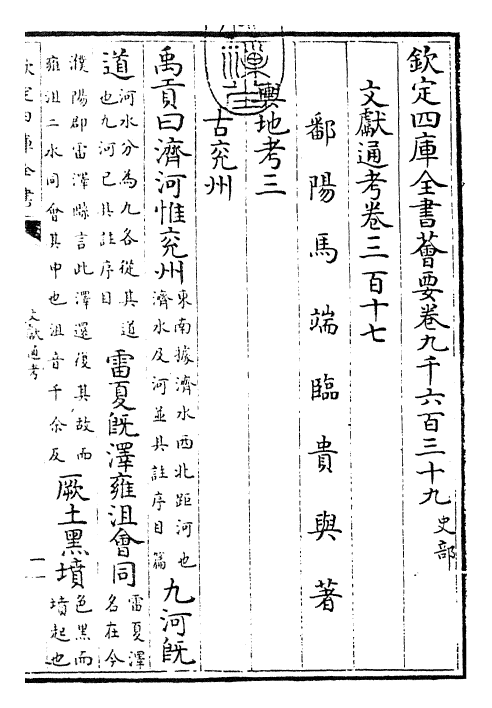 欽定四庫全書薈要卷九千六百三十九 史部
文獻通考卷三百十七
鄱陽馬端臨貴與著
輿地考三
古兗州
禹貢曰濟河惟兗州 東南據濟水西北距河也 濟水及河並具註序目篇 九河既
道 河水分為九各從其道 也九河已具註序目 雷夏既澤雍沮會同 雷夏澤 名在今
濮陽郡雷澤縣言此澤還復其故而 雍沮二水同會其中也沮音千余反 厥土黑墳 色黑而 墳起也
欽定四庫全書
文獻通考
一